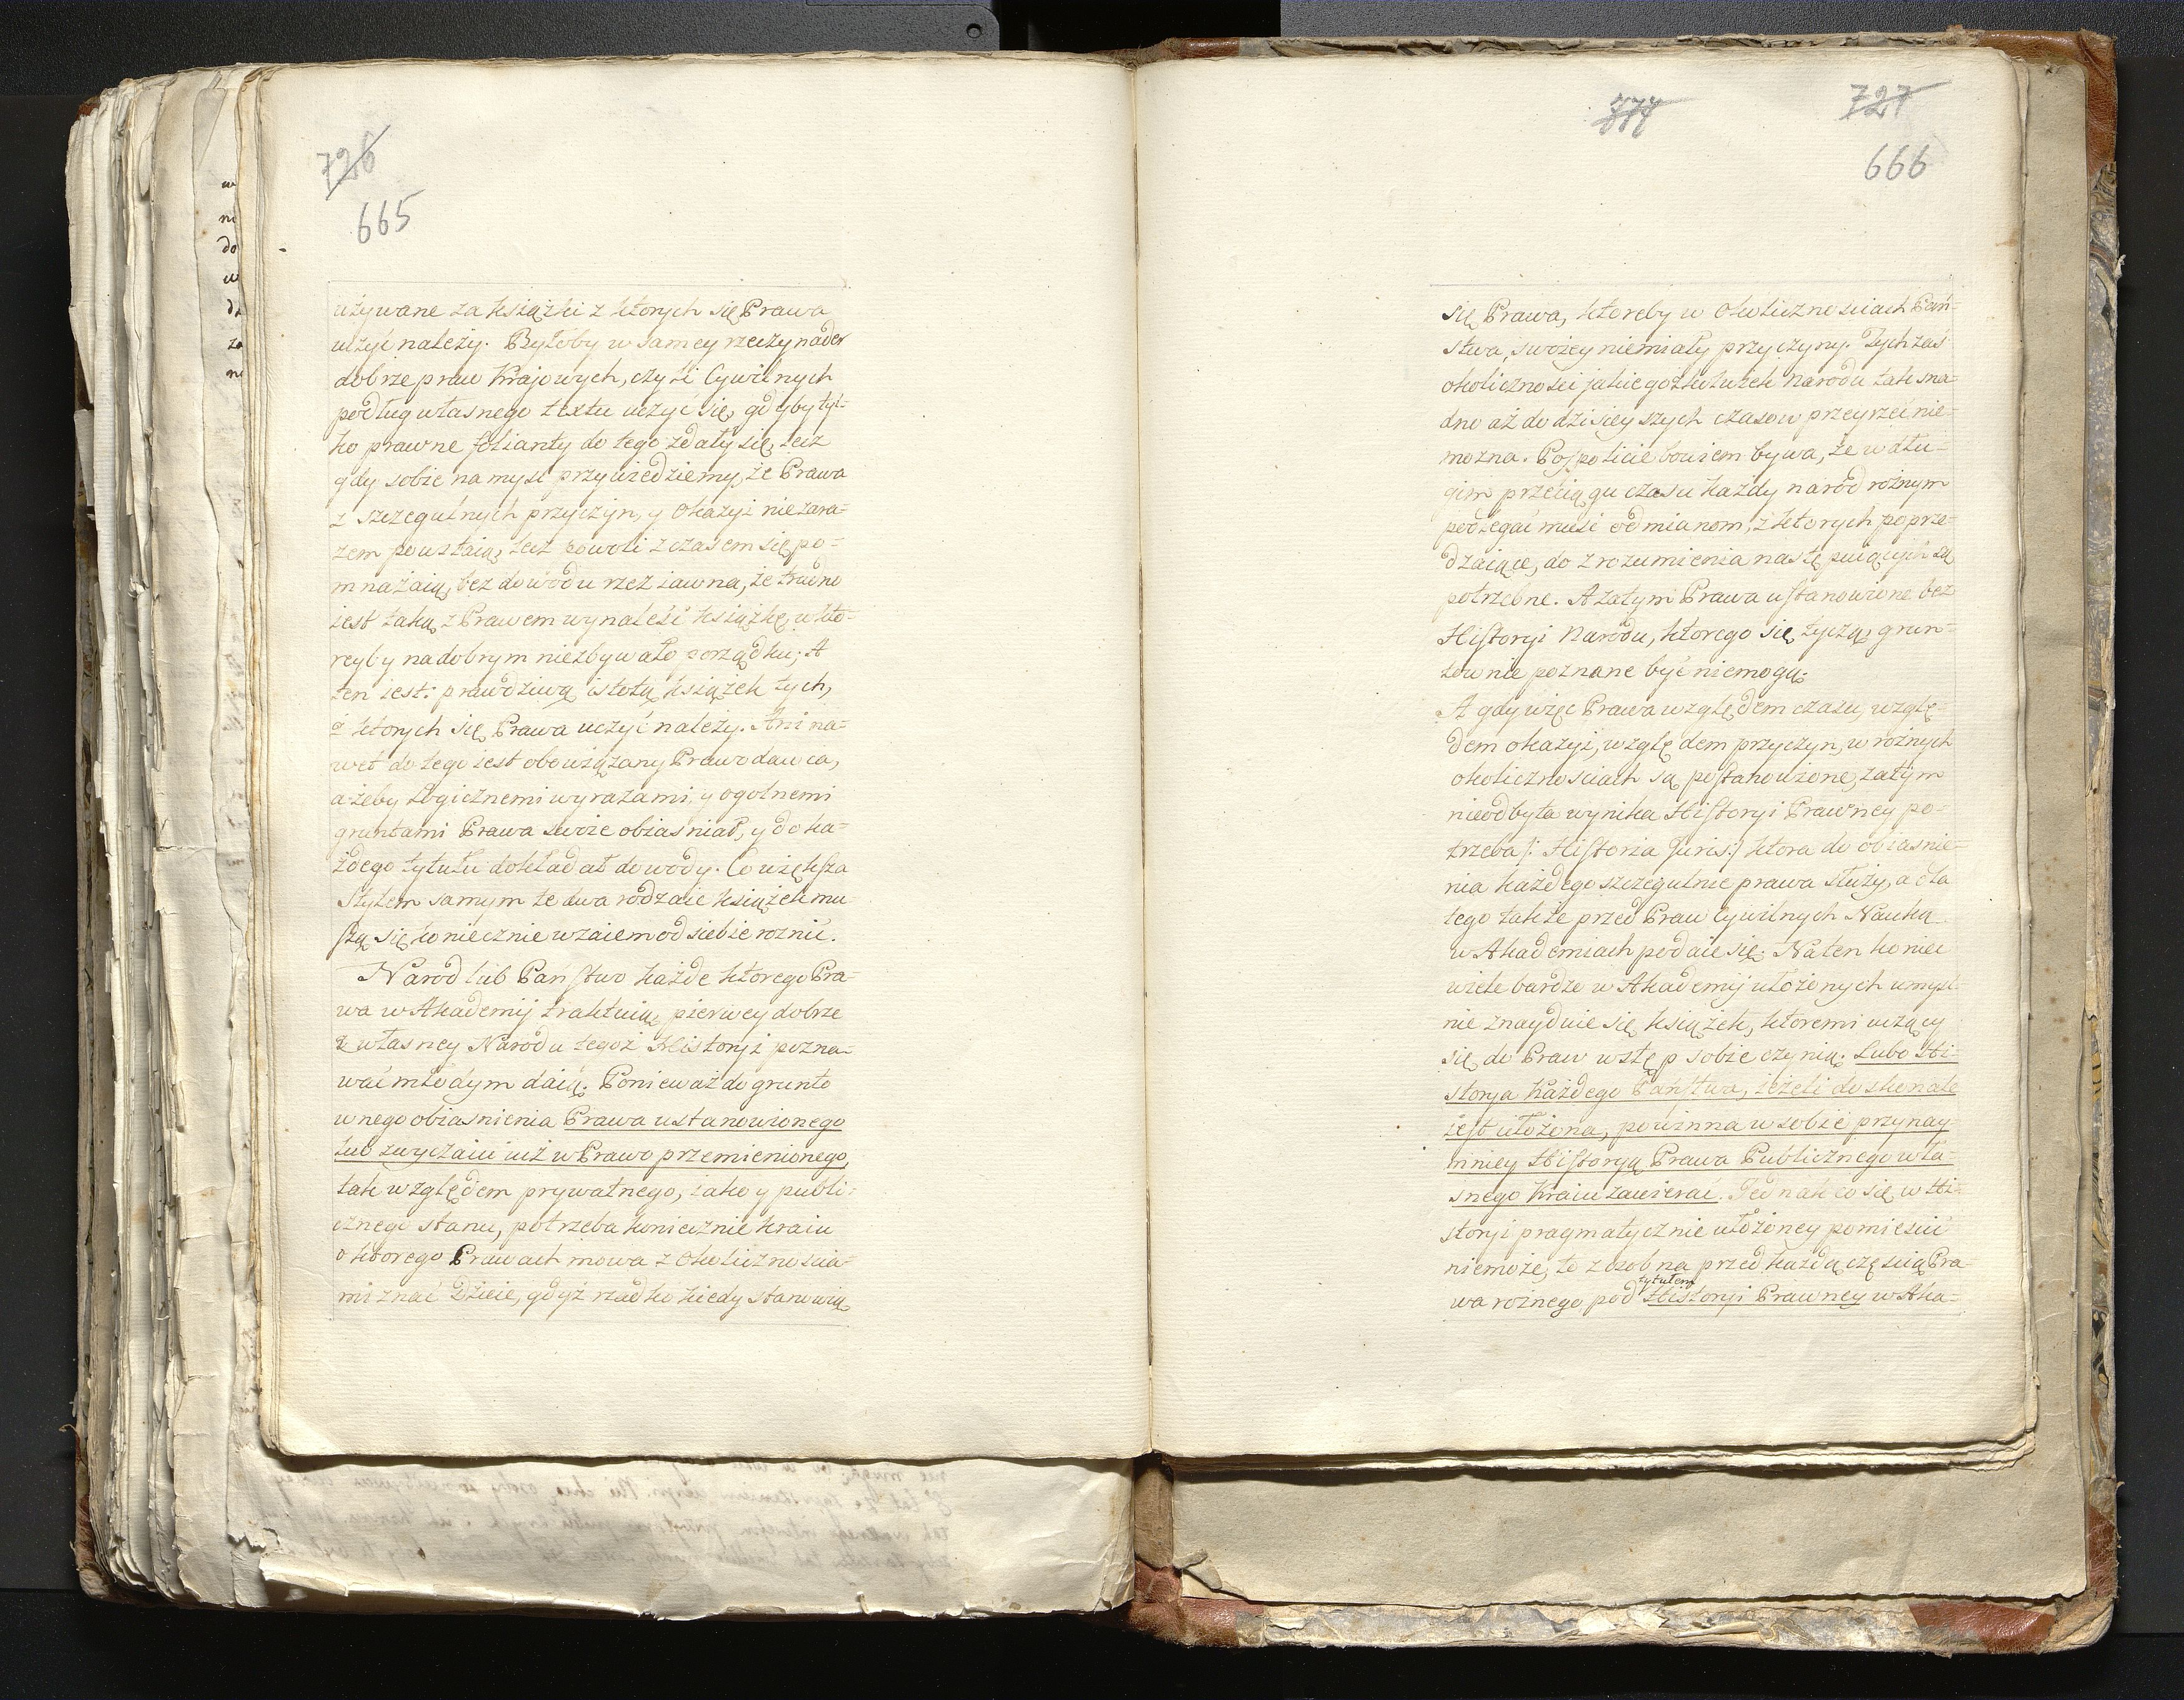 726
665
używane za książki z ktorych się Prawa
uczyć należy. Byłoby w samey rzeczy nader
dobrze praw Krajowych, czyli Cywilnych
podług własnego textu uczyć się, gdyby tyl-
ko prawne folianty do tego zdały się, lecz
gdy sobie na mysl przywiedziemy, że Prawa
z szczegulnych przyczyn, y okazyi niezara-
zem powstaią, lecz powoli z czasem się po-
mnażaią, bez dowodu rzez iawna, że trudno
iest taką z Prawem wynaleść książkę, u kto-
reyby na dobrym niezbywało porządku; A
ten iest: prawdziwą istotą książek tych,
z ktorych się Prawa uczyć należy. Ani na-
wet do tego iest obowiązany Prawodawca,
ażeby Logicznemi wyrazami, y ogolnemi
gruntami Prawa swoie obiasniał, y do ka-
żdego tytułu dokładał dowody. Co większa
stylem samym te dwa rodzaie książek mu-
szą się koniecznie wzaiem od siebie roznić.
Narod lub Państwo każde ktorego Pra-
wa w Akademij traktuią, pierwey dobrze
z własney Narodu tegoż Historyi pozna-
wać młodym daią. Ponieważ do grunto
wnego obiasnienia Prawa ustanowionego
lub zwyczaiu iuż w Prawo przemienionego,
tak względem prywatnego, iako y publi-
cznego stanu, potrzeba koniecznie kraiu
o ktorego Prawach mowa z okolicznoscia-
mi znać Dzieie, gdyż rzadko kiedy stanowią
727
666
się Prawa, ktoreby w okolicznosciach Pań-
stwa, swoiey niemiały przyczyny. Tych zaś
okolicznosci jakiegożkolwiek narodu tak sna-
dno aż do dzisieyszych czasow przeyrzeć nie-
mozna. Pospolicie bowiem bywa, że w dłu-
gim przeciągu czasu każdy narod rożnym
podlegać musi odmianom, z ktorych poprze-
dzaiące, do zrozumienia następuiących są
potrzebne. A zatym Prawa ustanowione bez
Historyi Narodu, ktorego się tyczą, grun-
townie poznane być niemogą.
A gdy więc Prawa względem czasu, wzglę-
dem okazyi, względem przyczyn, w rożnych
okolicznosciach są postanowione, zatym
nieodbyta wynika Historyi Prawney po-
trzeba /: Historia Juris :/ ktora do obiasnie-
nia każdego szczegulnie prawa służy, a dla
tego także przed Praw Cywilnych Nauką
w Akademiach podaie się. Na ten koniec
wiele bardzo w Akademij ułożonych umysl-
nie znayduie się książek, ktoremi uczący
się do Praw wstęp sobie czynią. Lubo Hi-
storya Każdego Państwa, ieżeli doskonale
iest ułożona, powinna w sobie przynay-
mniey Historyą Prawa Publicznego wła-
snego Kraiu zawierać. Jednak co się w Hi-
storyi pragmatycznie ułożoney pomiescić
niemoże, to z osobna przed każdą częscią Pra-
wa rożnego pod tytułem Historyi Prawney w Aka-